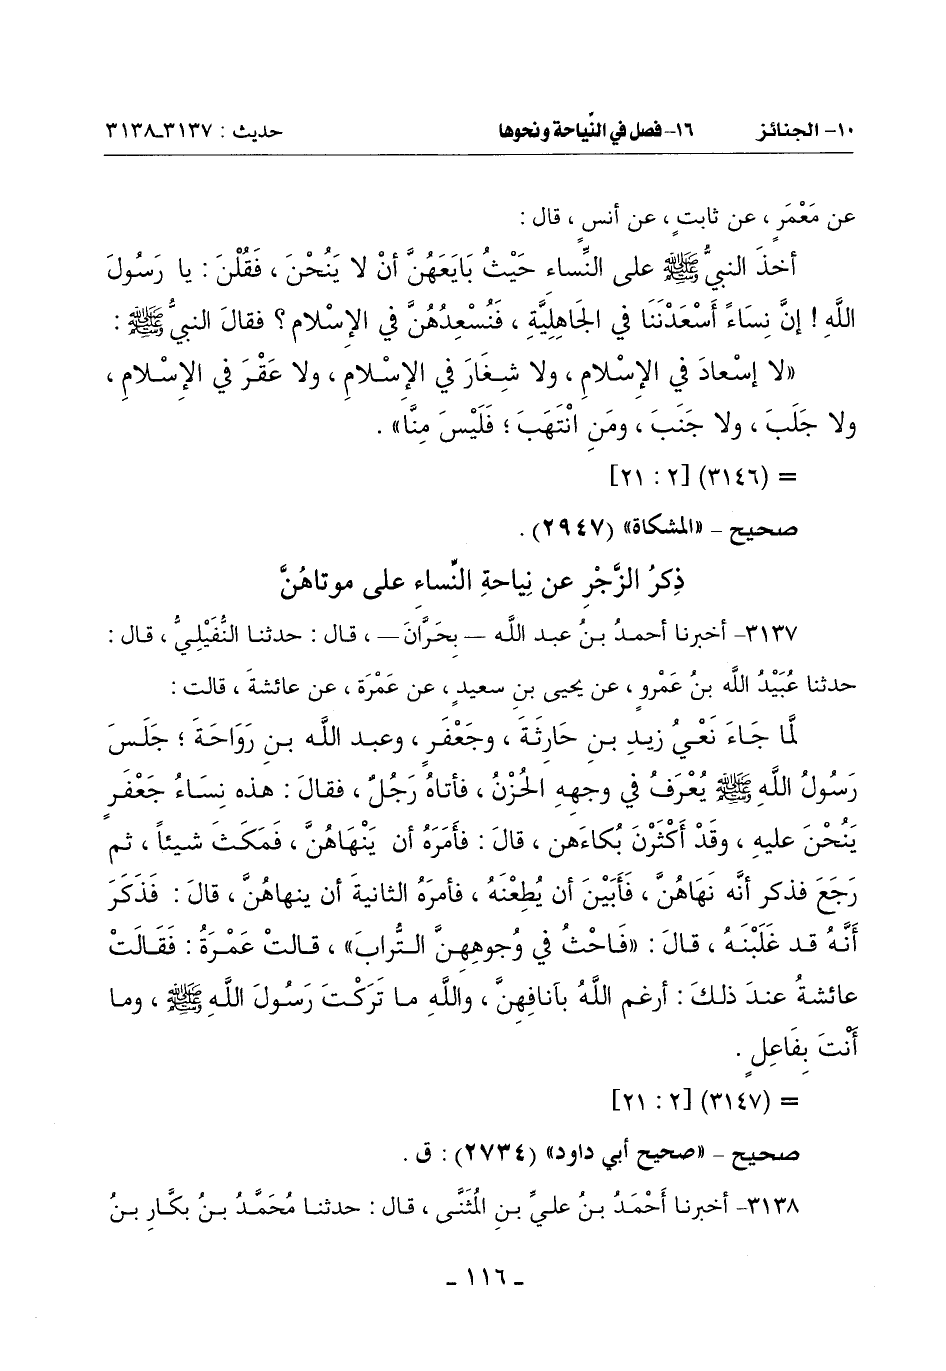 ١٠- الجنائز ١٦- فصل في النِّياحة ونحوها حديث : ٣١٣٧ـ٣١٣٨
عن مَعْمَرٍ ، عن ثابتٍ ، عن أنسٍ ، قال :
أخذَ النبيُّ ﷺ على النِّساء حَيْثُ بَايَعَهُنَّ أنْ لا يَنُحْنَ ، فَقُلْنَ : يا رَسُولَ
اللَّهِ ! إنَّ نِسَاءً أَسْعَدْنَنَا في الجَاهِليَّةِ ، فَنُسْعِدُهُنَّ في الإسْلامِ ؟ فقالَ النبيُّ ﷺ :
«لا إسْعادَ في الإسْلامِ ، ولا شِغَارَ في الإسْلامِ ، ولا عَقْرَ في الإسْلامِ ،
ولا جَلَبَ ، ولا جَنَبَ ، ومَنِ انْتَهَبَ ؛ فَلَيْسَ مِنَّا» .
= (٣١٤٦) [٢ : ٢١]
صحيح – «المشكاة» (٢٩٤٧) .
ذِكرُ الزَّجْرِ عن نِياحةِ النِّساء على موتاهُنَّ
٣١٣٧- أخبرنا أحمدُ بنُ عبد اللَّه – بِحَرَّانَ – ، قال : حدثنا النُّفَيْلِيُّ ، قال :
حدثنا عُبَيْدُ اللَّه بنُ عَمْرٍو ، عن يحيى بنِ سعيدٍ ، عن عَمْرَة ، عن عائشةَ ، قالت :
لَّا جَاءَ نَعْيُ زيدِ بنِ حارِثَةَ ، وجَعْفَرٍ ، وعبد اللَّه بنِ رَوَاحَةَ ؛ جلَسَ
رَسُولُ اللَّهِ ﷺ يُعْرَفُ في وجههِ الحُزْنُ ، فأتاهُ رَجُلٌ ، فقالَ : هذه نِسَاءُ جَعْفَرٍ
يَنُحْنَ عليهِ ، وقَدْ أكْثَرْنَ بُكاءَهن ، قالَ : فأَمَرَهُ أن يَنْهَاهُنَّ ، فَمَكَثَ شيئاً ، ثم
رَجَعَ فذكر أنَّه نَهَاهُنَّ ، فَأَبَيْنَ أن يُطِعْنَهُ ، فأمرَهُ الثانيةَ أن ينهاهُنَّ ، قالَ : فَذَكَرَ
أنَّهُ قد غَلَبْنَهُ ، قالَ : «فَاحْثُ في وُجوهِهِنَّ التُّرابَ» ، قالتْ عَمْرَةُ : فَقَالَتْ
عائشةُ عندَ ذلكَ : أرغم اللَّهُ بآنافِهنَّ ، واللَّهِ ما تَرَكْتَ رَسُولَ اللَّهِ ﷺ ، وما
أَنْتَ بِفَاعِلٍ .
= (٣١٤٧) [٢ : ٢١]
صحيح – «صحيح أبي داود» (٢٧٣٤) : ق .
٣١٣٨- أخبرنا أَحْمَدُ بنُ عليِّ بنِ المُثَنَّى ، قال : حدثنا مُحَمَّدُ بنُ بكَّارِ بنُ
– ١١٦ –